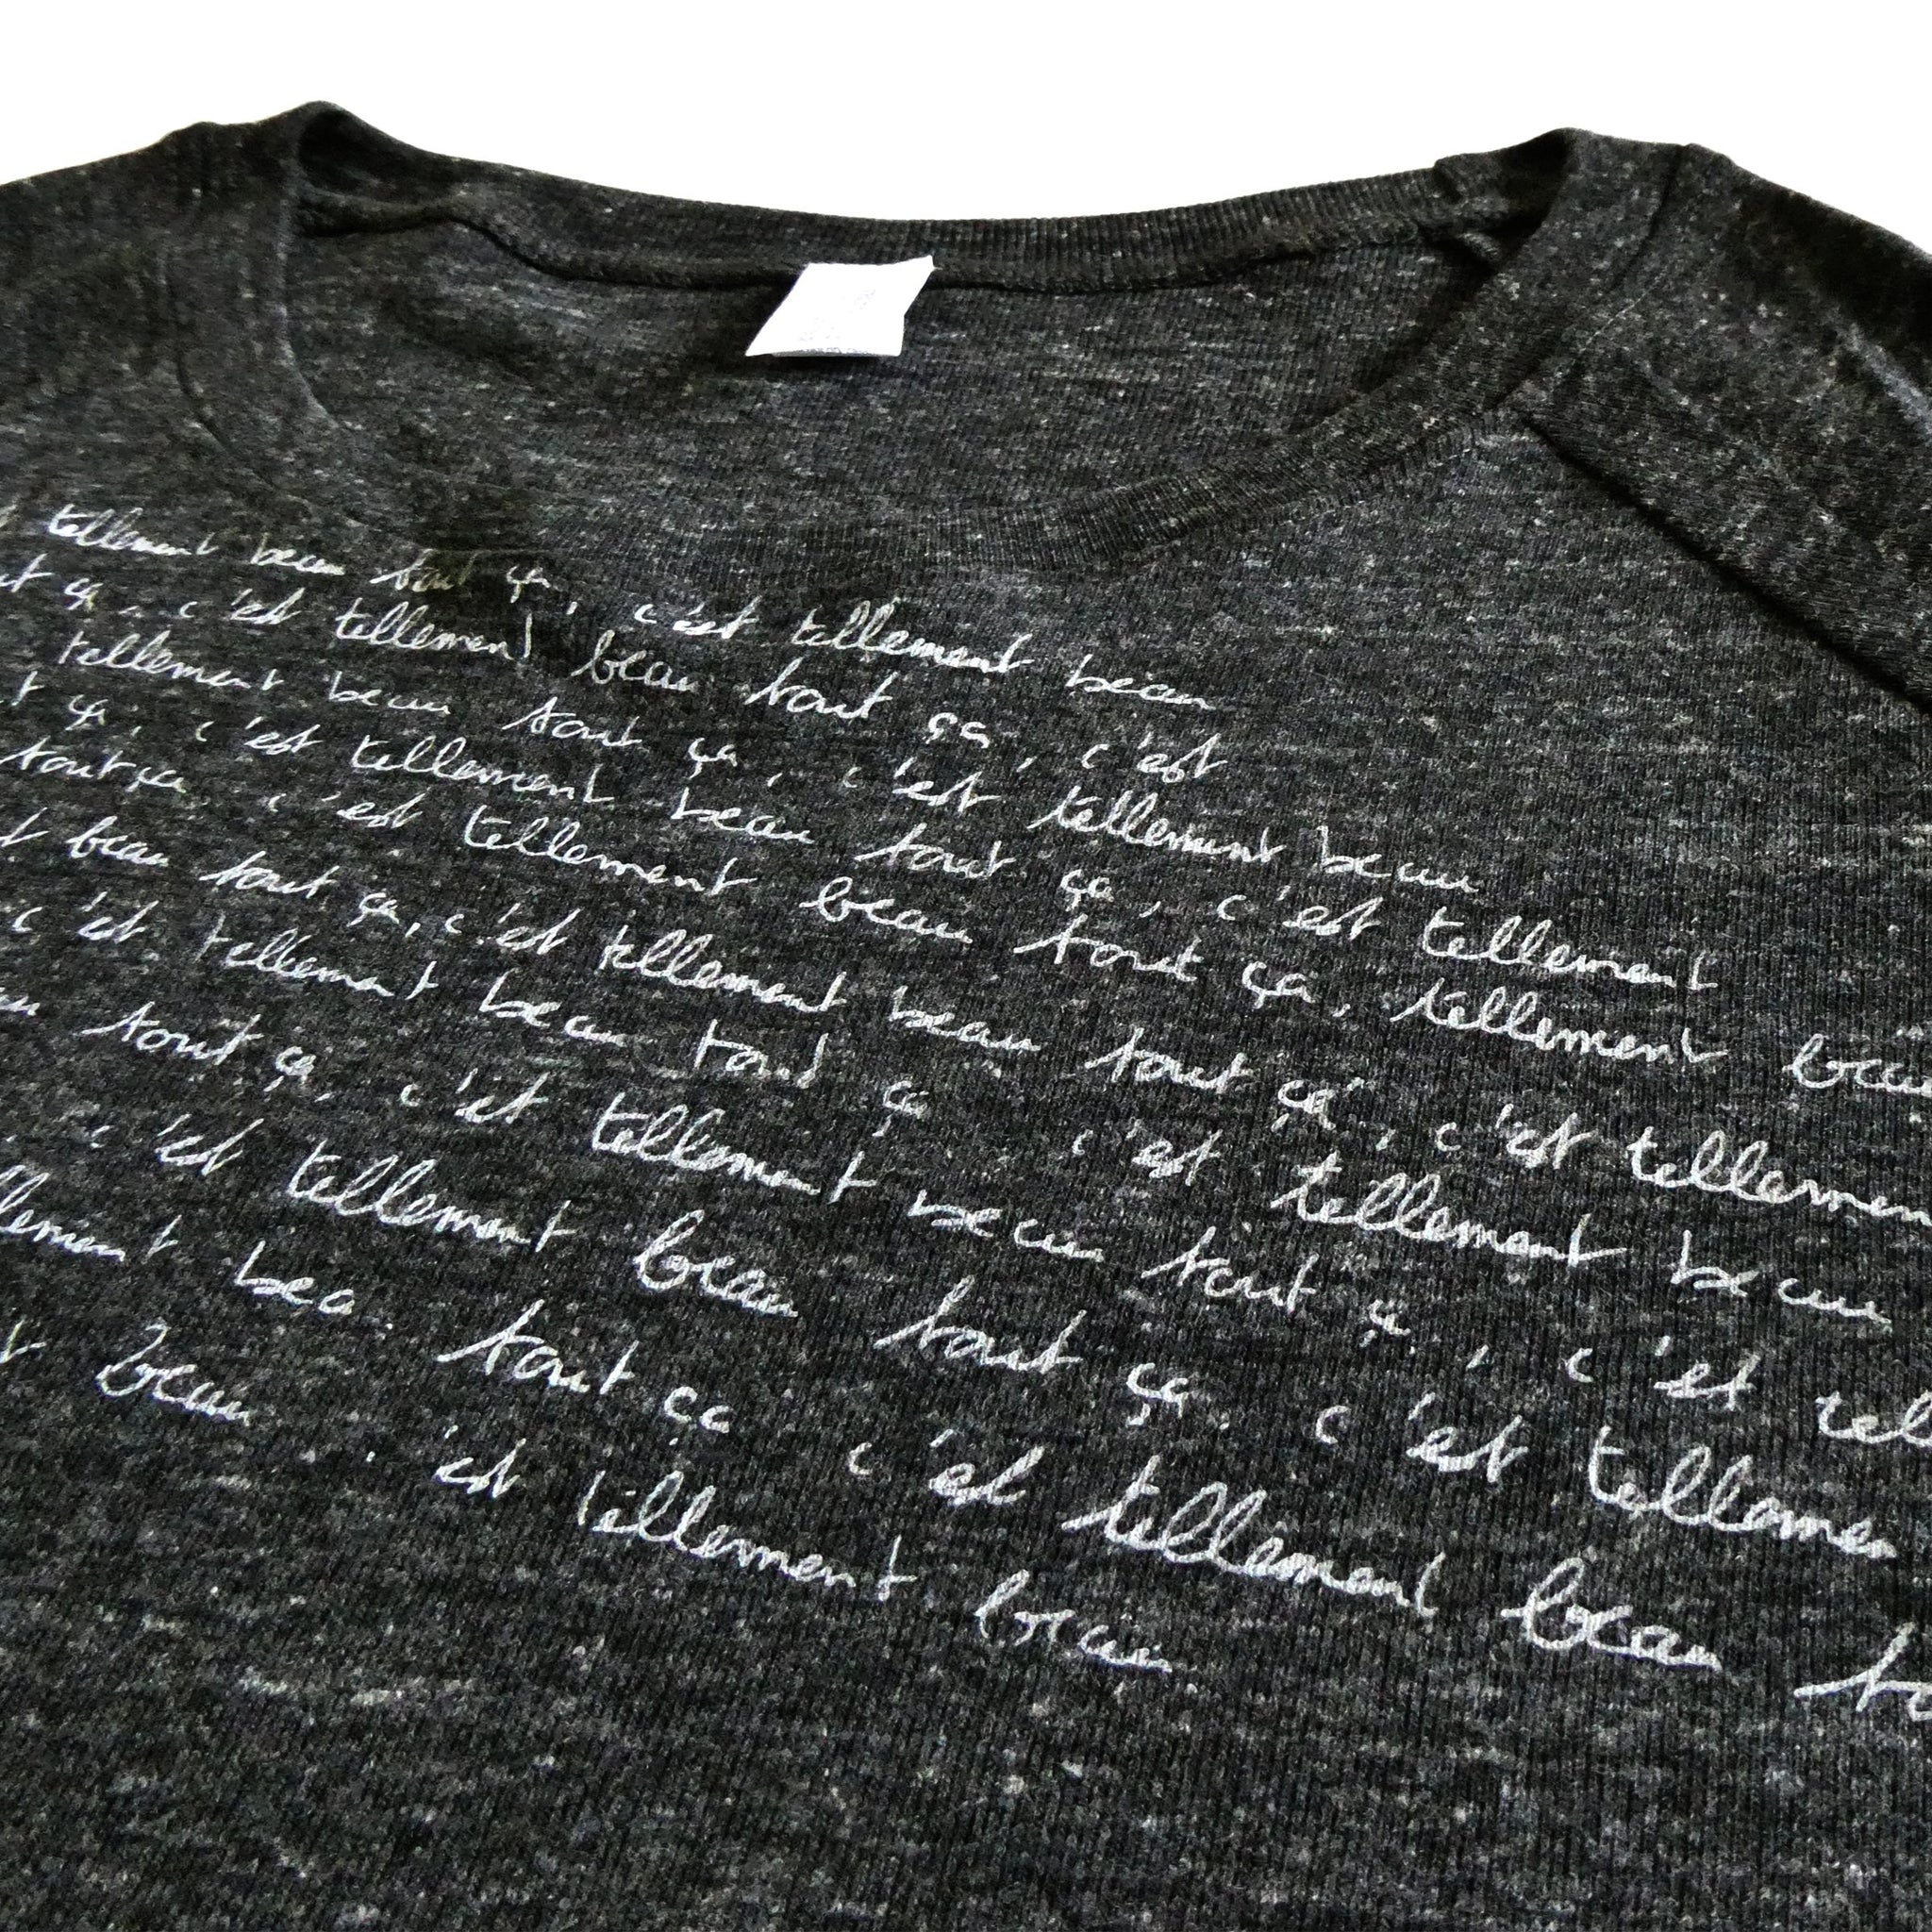 tellement beau tout ça, c'est tellement beau
ça, c'est tellement beau tout ça, c'est
tellement beau tout ça, c'est tellement beau
ça, c'est tellement beau tout ça, c'est tellement
tout ça, c'est tellement beau tout ça, tellement beau
beau tout ça, c'est tellement beau tout ça, c'est tellement
c'est tellement beau tout ça c'est tellement beau
tout ça, c'est tellement beau tout ça, c'est
c'est tellement beau tout ça, c'est tellemen
bea tout ça c'est tellement beau
beau, 'est tellement beau